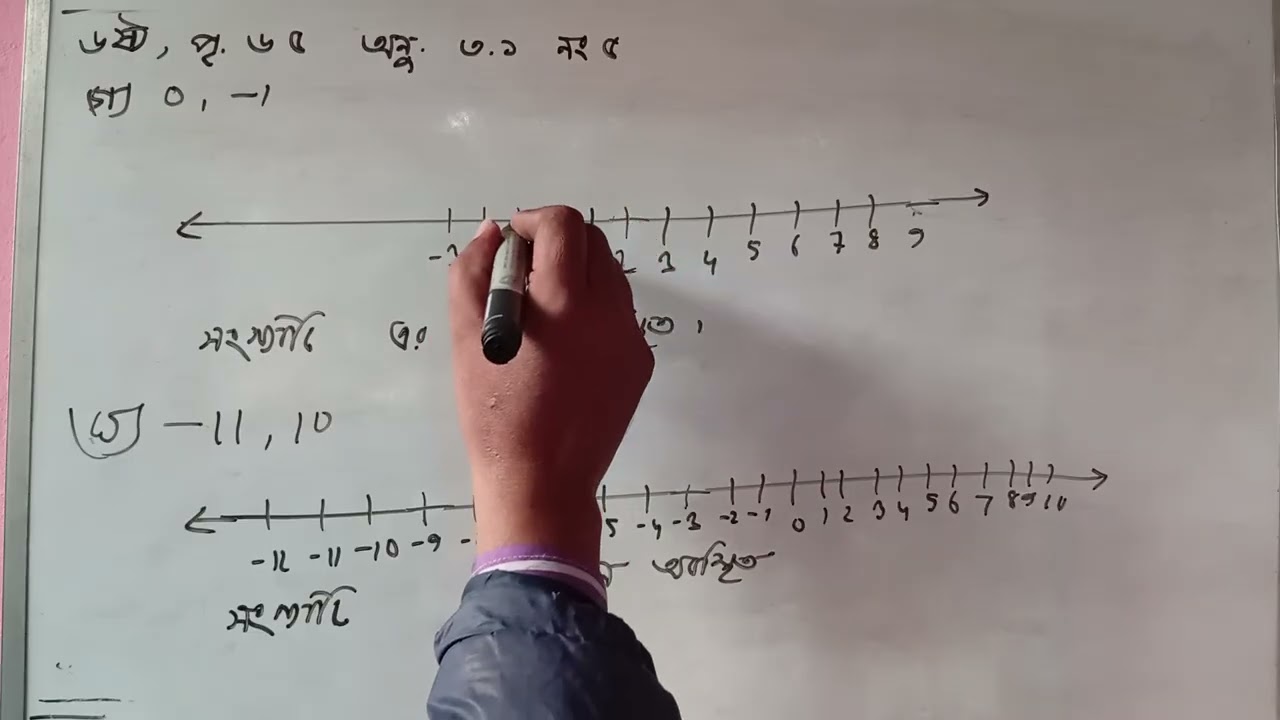 ৬ষ্ঠ, পৃ. ৬৫ অনু. ৩.১ নং ৫
গ) 0, -1
2 3 4 5 6 7 8 9
সংখ্যাটি এর
-11, 10
-12 -11 -10 -9 5 -4 -3 -2 -1 0 1 2 3 4 5 6 7 8 9 10
অবস্থিত
সংখ্যাটি